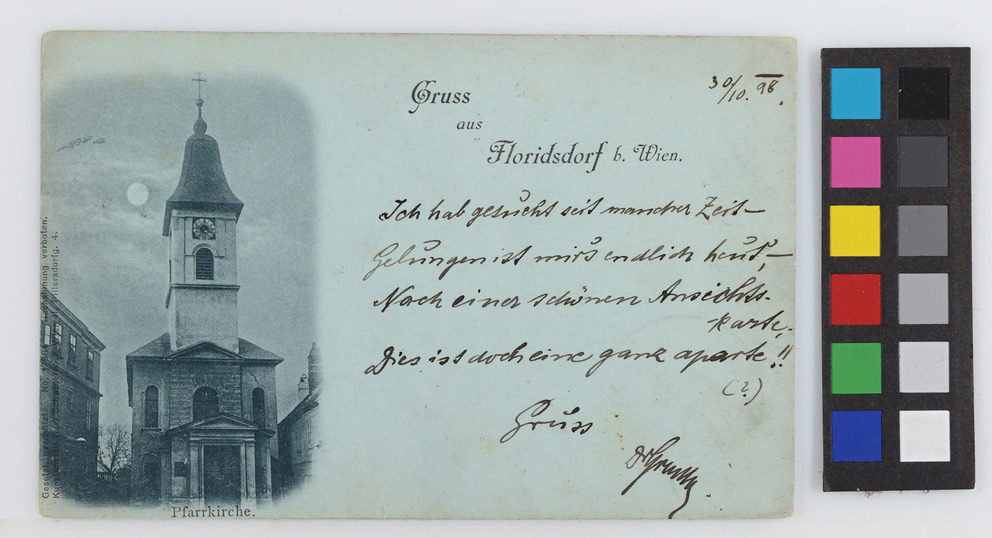 Gruss
aus
Floridsdorf b. Wien.
30/10. 98.
Ich hab gesucht seit mancher Zeit-
Gelungen ist mirs endlich heut,-
Nach einer schönen Ansichts-
-karte,-
Dies ist doch eine ganz aparte!!
(?)
Gruss
Pfarrkirche.
Gesetzl. No.
verboten.